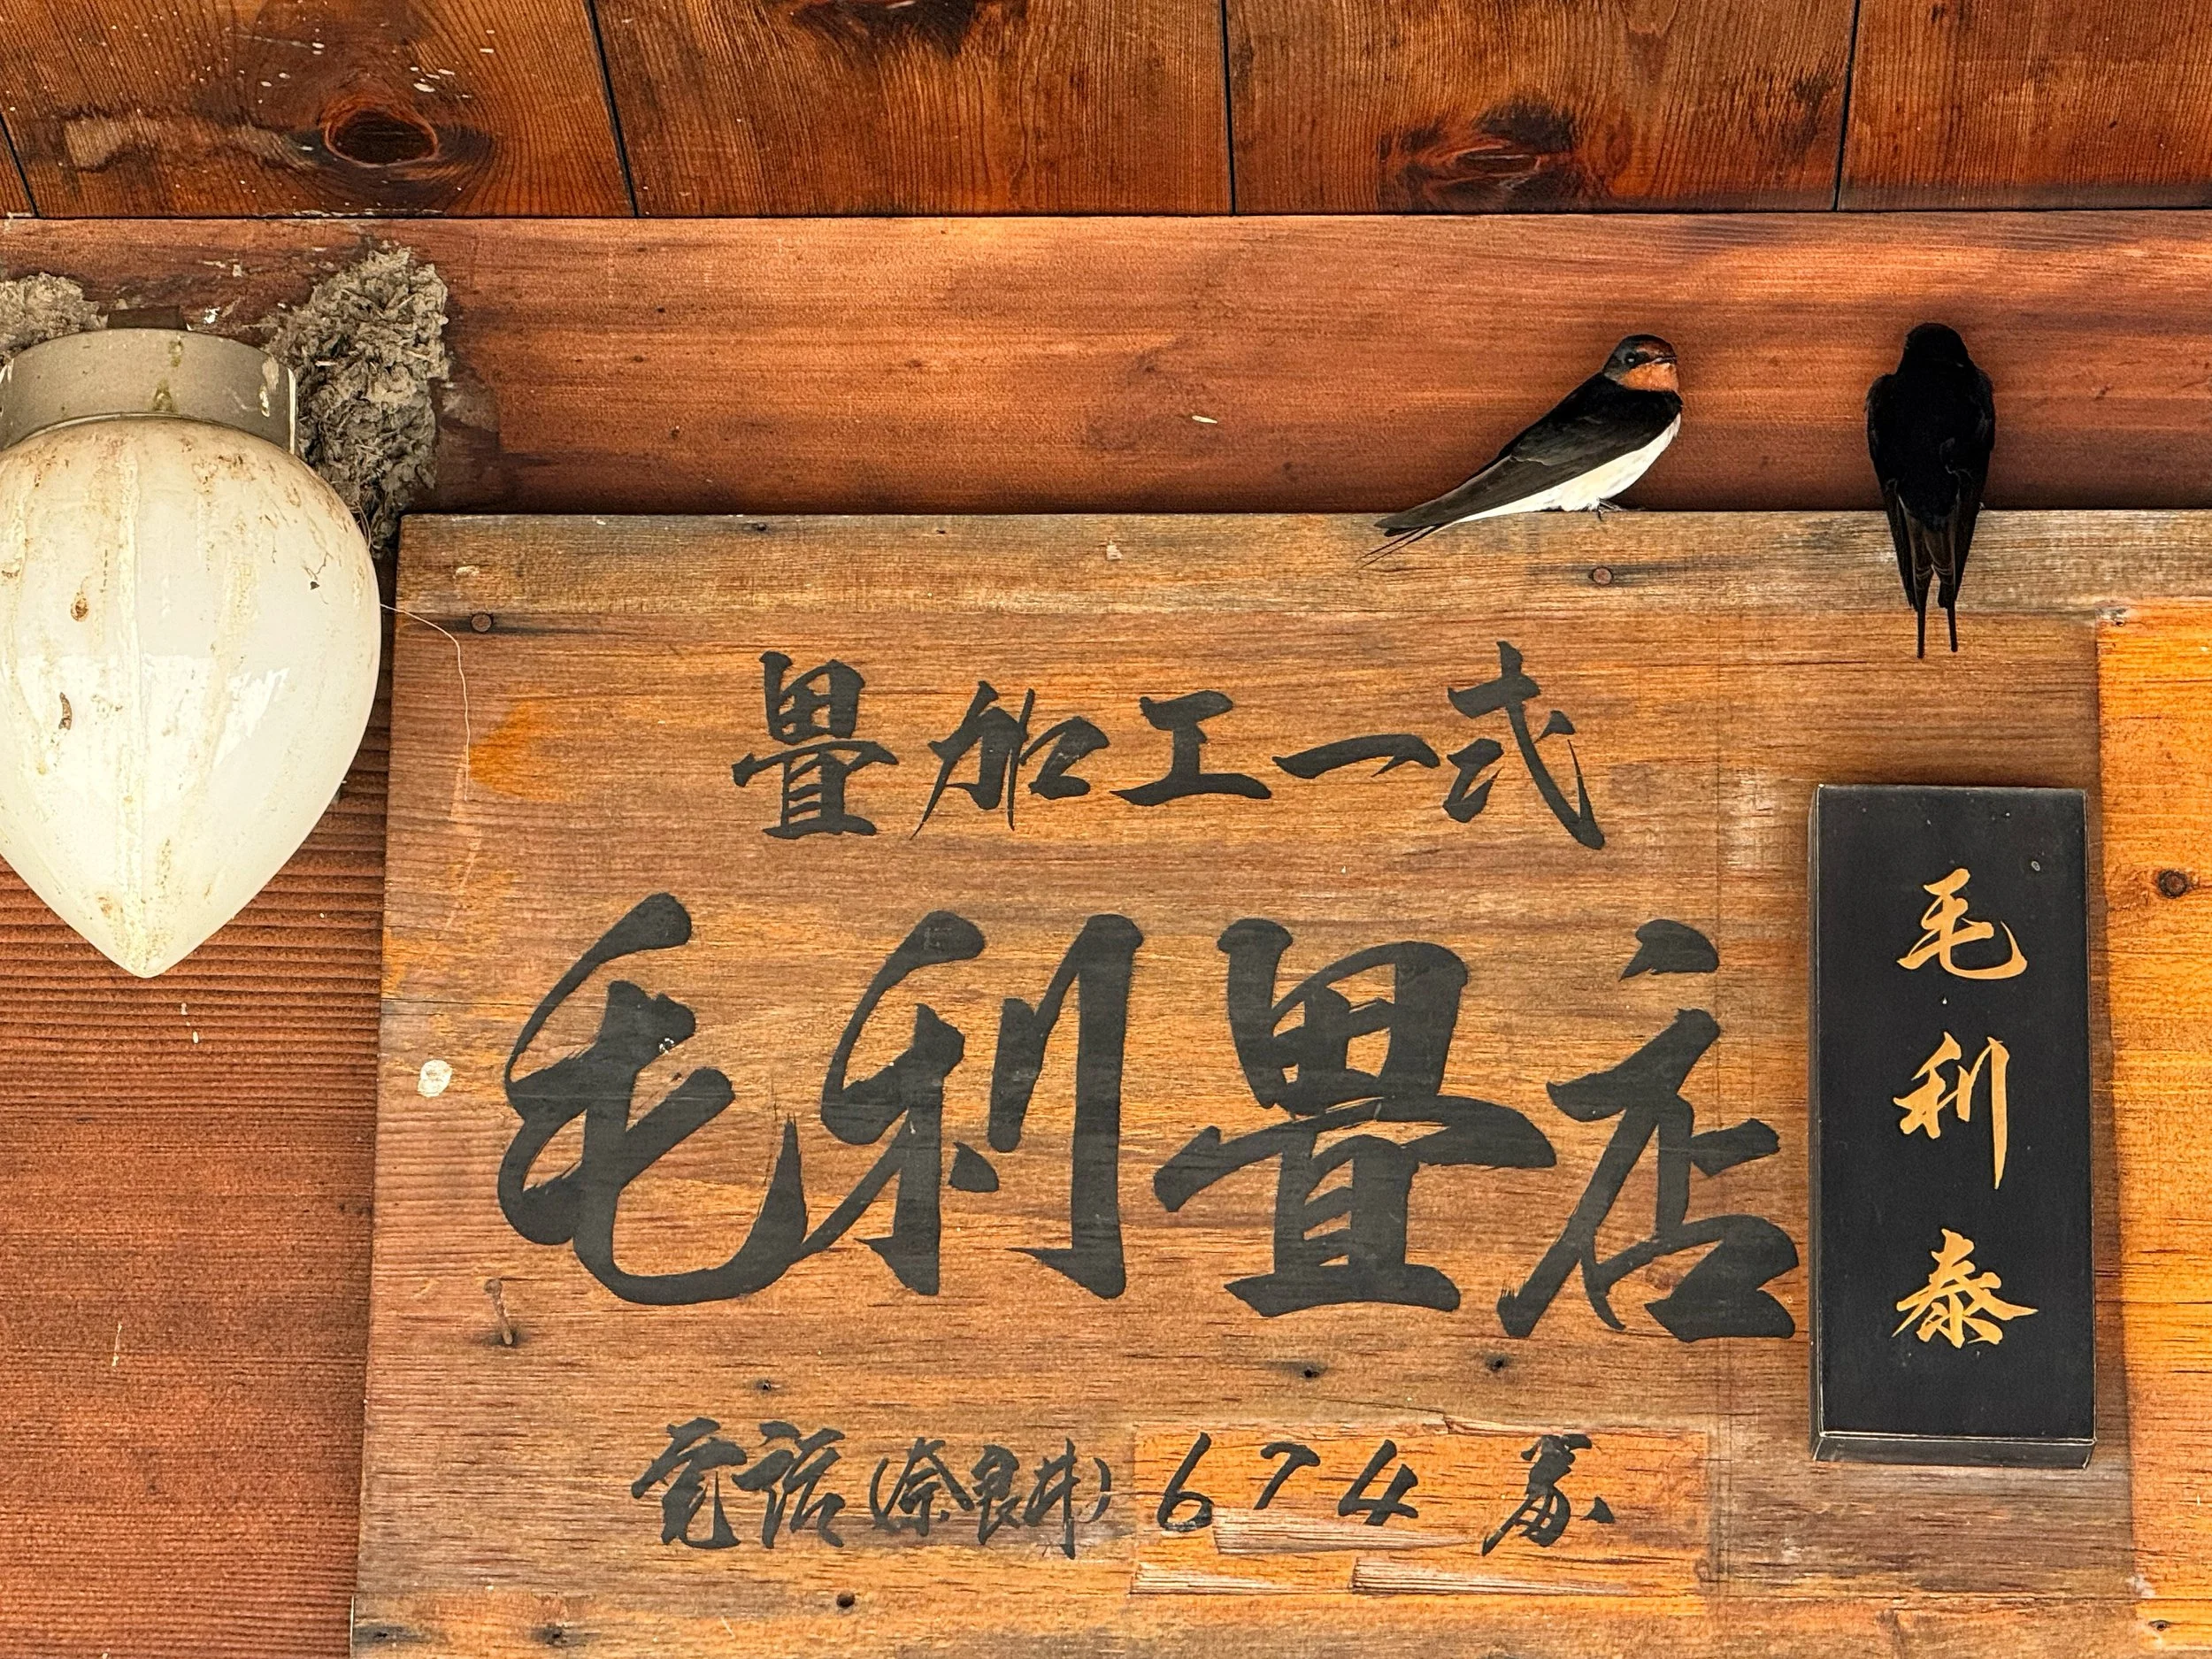 畳加工一式
毛利畳店
電話(奈良井)674番
毛利泰